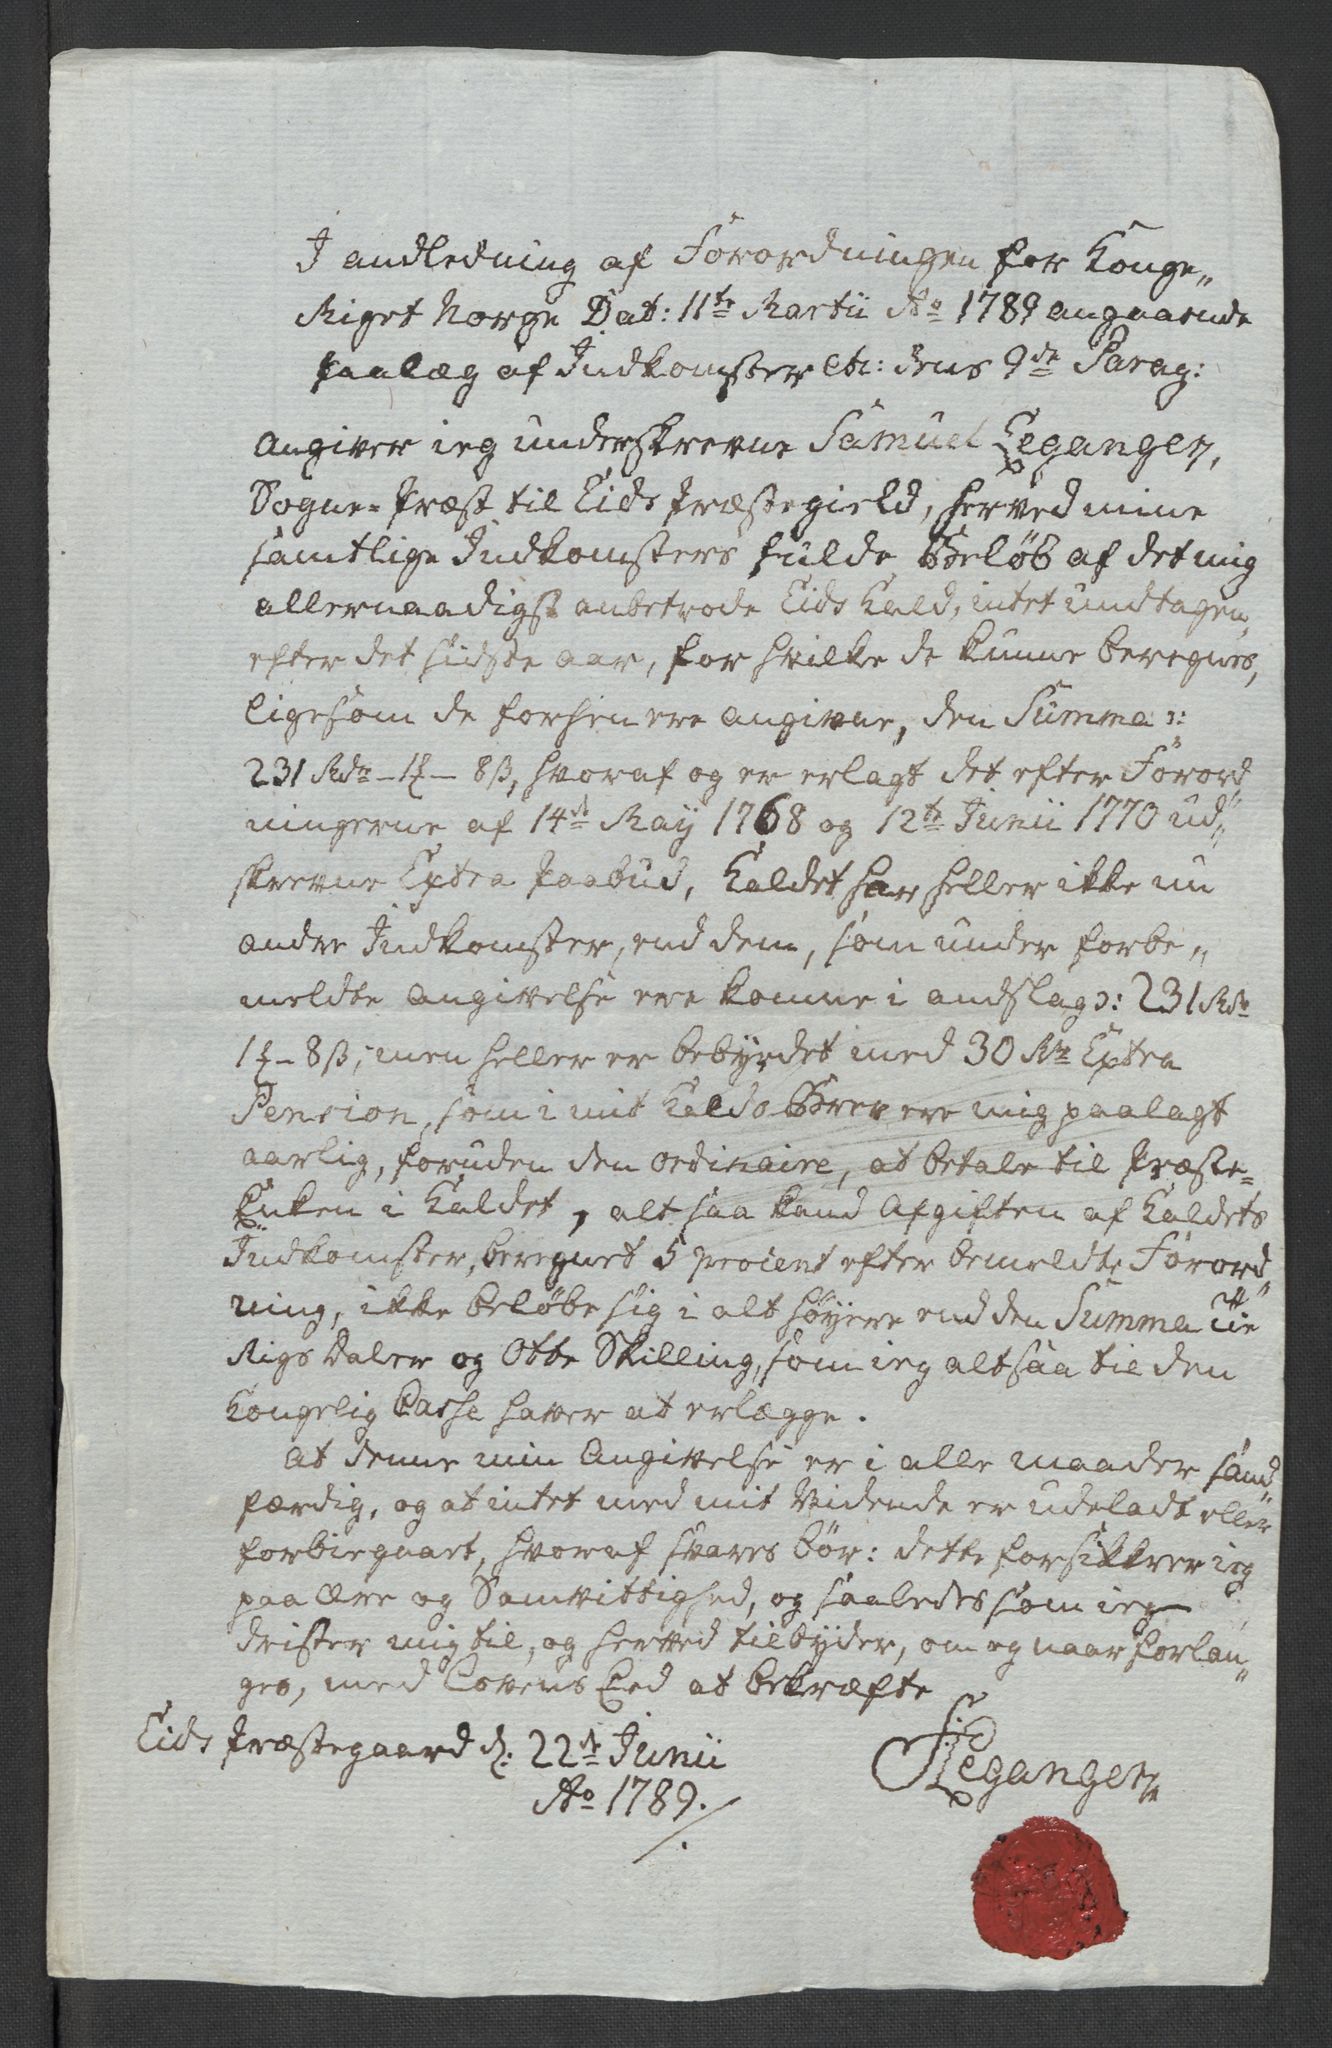 I andledning af Forordningen for Konge„
Riget Norge Dat: 11te Martii Ao 1789 angaaende
paalæg af Indkomster etc: dens 9de Parag:
angiver ieg underskrevne Samuel Leganger,
Sogne-Præst til Eids Præstegield, herved mine
samtlige Indkomsters fulde Beløb af det mig
allernaadigst anbetrode Eids Kald, intet undtagen,
efter det sidste aar, for hvilke de kunne beregnes,
ligesom de forhen ere angivne, den Summa ɔ:
231 Rdr - 1 ℔ - 8 ß, hvoraf og er erlagt det efter Forord„
ningerne af 14de May 1768 og 12te Junii 1770 ud„
skrevne Extra Paabud, Kaldet har heller ikke nu
andre Indkomster, end dem, som under forbe„
meldte angivelse ere komne i andslag ɔ: 231 Rdr
1 ℔ - 8 ß; men heller er bebyrdet med 30 Rdr Extra
Pension, som i mit Kalds Brev ere mig paalagt
aarlig, foruden den ordinaire, at betale til Præste-
Enken i Kaldet, alt saa kand Afgiften af Kaldets
Indkomster, beregnet 5 procent efter bemeldte Forord„
ning, ikke beløbe sig i alt høyere end den Summa Tie
Rigs Daler og Otte Skilling, som ieg altsaa til den
Kongelig Casse haver at erlægge.
At denne min Angivelse er i alle maader sand„
færdig, og at intet med mit Vidende er udeladt eller
forbiegaaet, hvoraf svares bør: dette forsikkrer ieg
paa Ære og Samvittighed, og saaledes som ieg
drister mig til, og herved tilbyder, om og naar forlan„
ges, med Lovens Eed at bekræfte
Eids Præstegaard d: 22de Junii
Ao 1789.
SLeganger